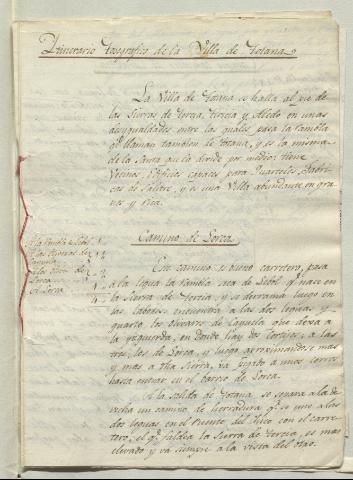 Itinerario Geografico de la Villa de Totana
La Villa de Totana se halla al pie de
las Sierras de Tercia y Aledo en unas
desygualdades entre las quales pasa la rambla
qe. llaman tambien de Totana, y es la misma
de la Santa que la divide por medio: tiene
Vecinos, Edificios capaces para Quarteles, Fabri-
cas de Salitre, y es una Villa abundante en gra-
nos y
Camino de Lorca
Este camino es bueno carretero, pasa
á la legua la rambla seca de Lebor qe. nace en
la Sierra de Tercia, y se derrama luego en
las labores, encuentra á las dos leguas y
quarto los olivares de que dexa a
la yzquierda, en donde hay dos Cortijos; a las
tres, los de Lorca, y luego aproximandose mas
y mas a dha Sierra, va pegado a unos cerros
hasta entrar en el barrio de Lorca.
A la salida de Totana se separa a la de-
recha un camino de herradura qe. se une a las
dos leguas en el Puente del con el carre-
tero, el qe. faldea la Sierra de Tercia, es mas
elevado y va siempre a la vista del otro.
A la rambla de Lebor 1
A los olivares de
A los olivos de
Lorca
A Lorca